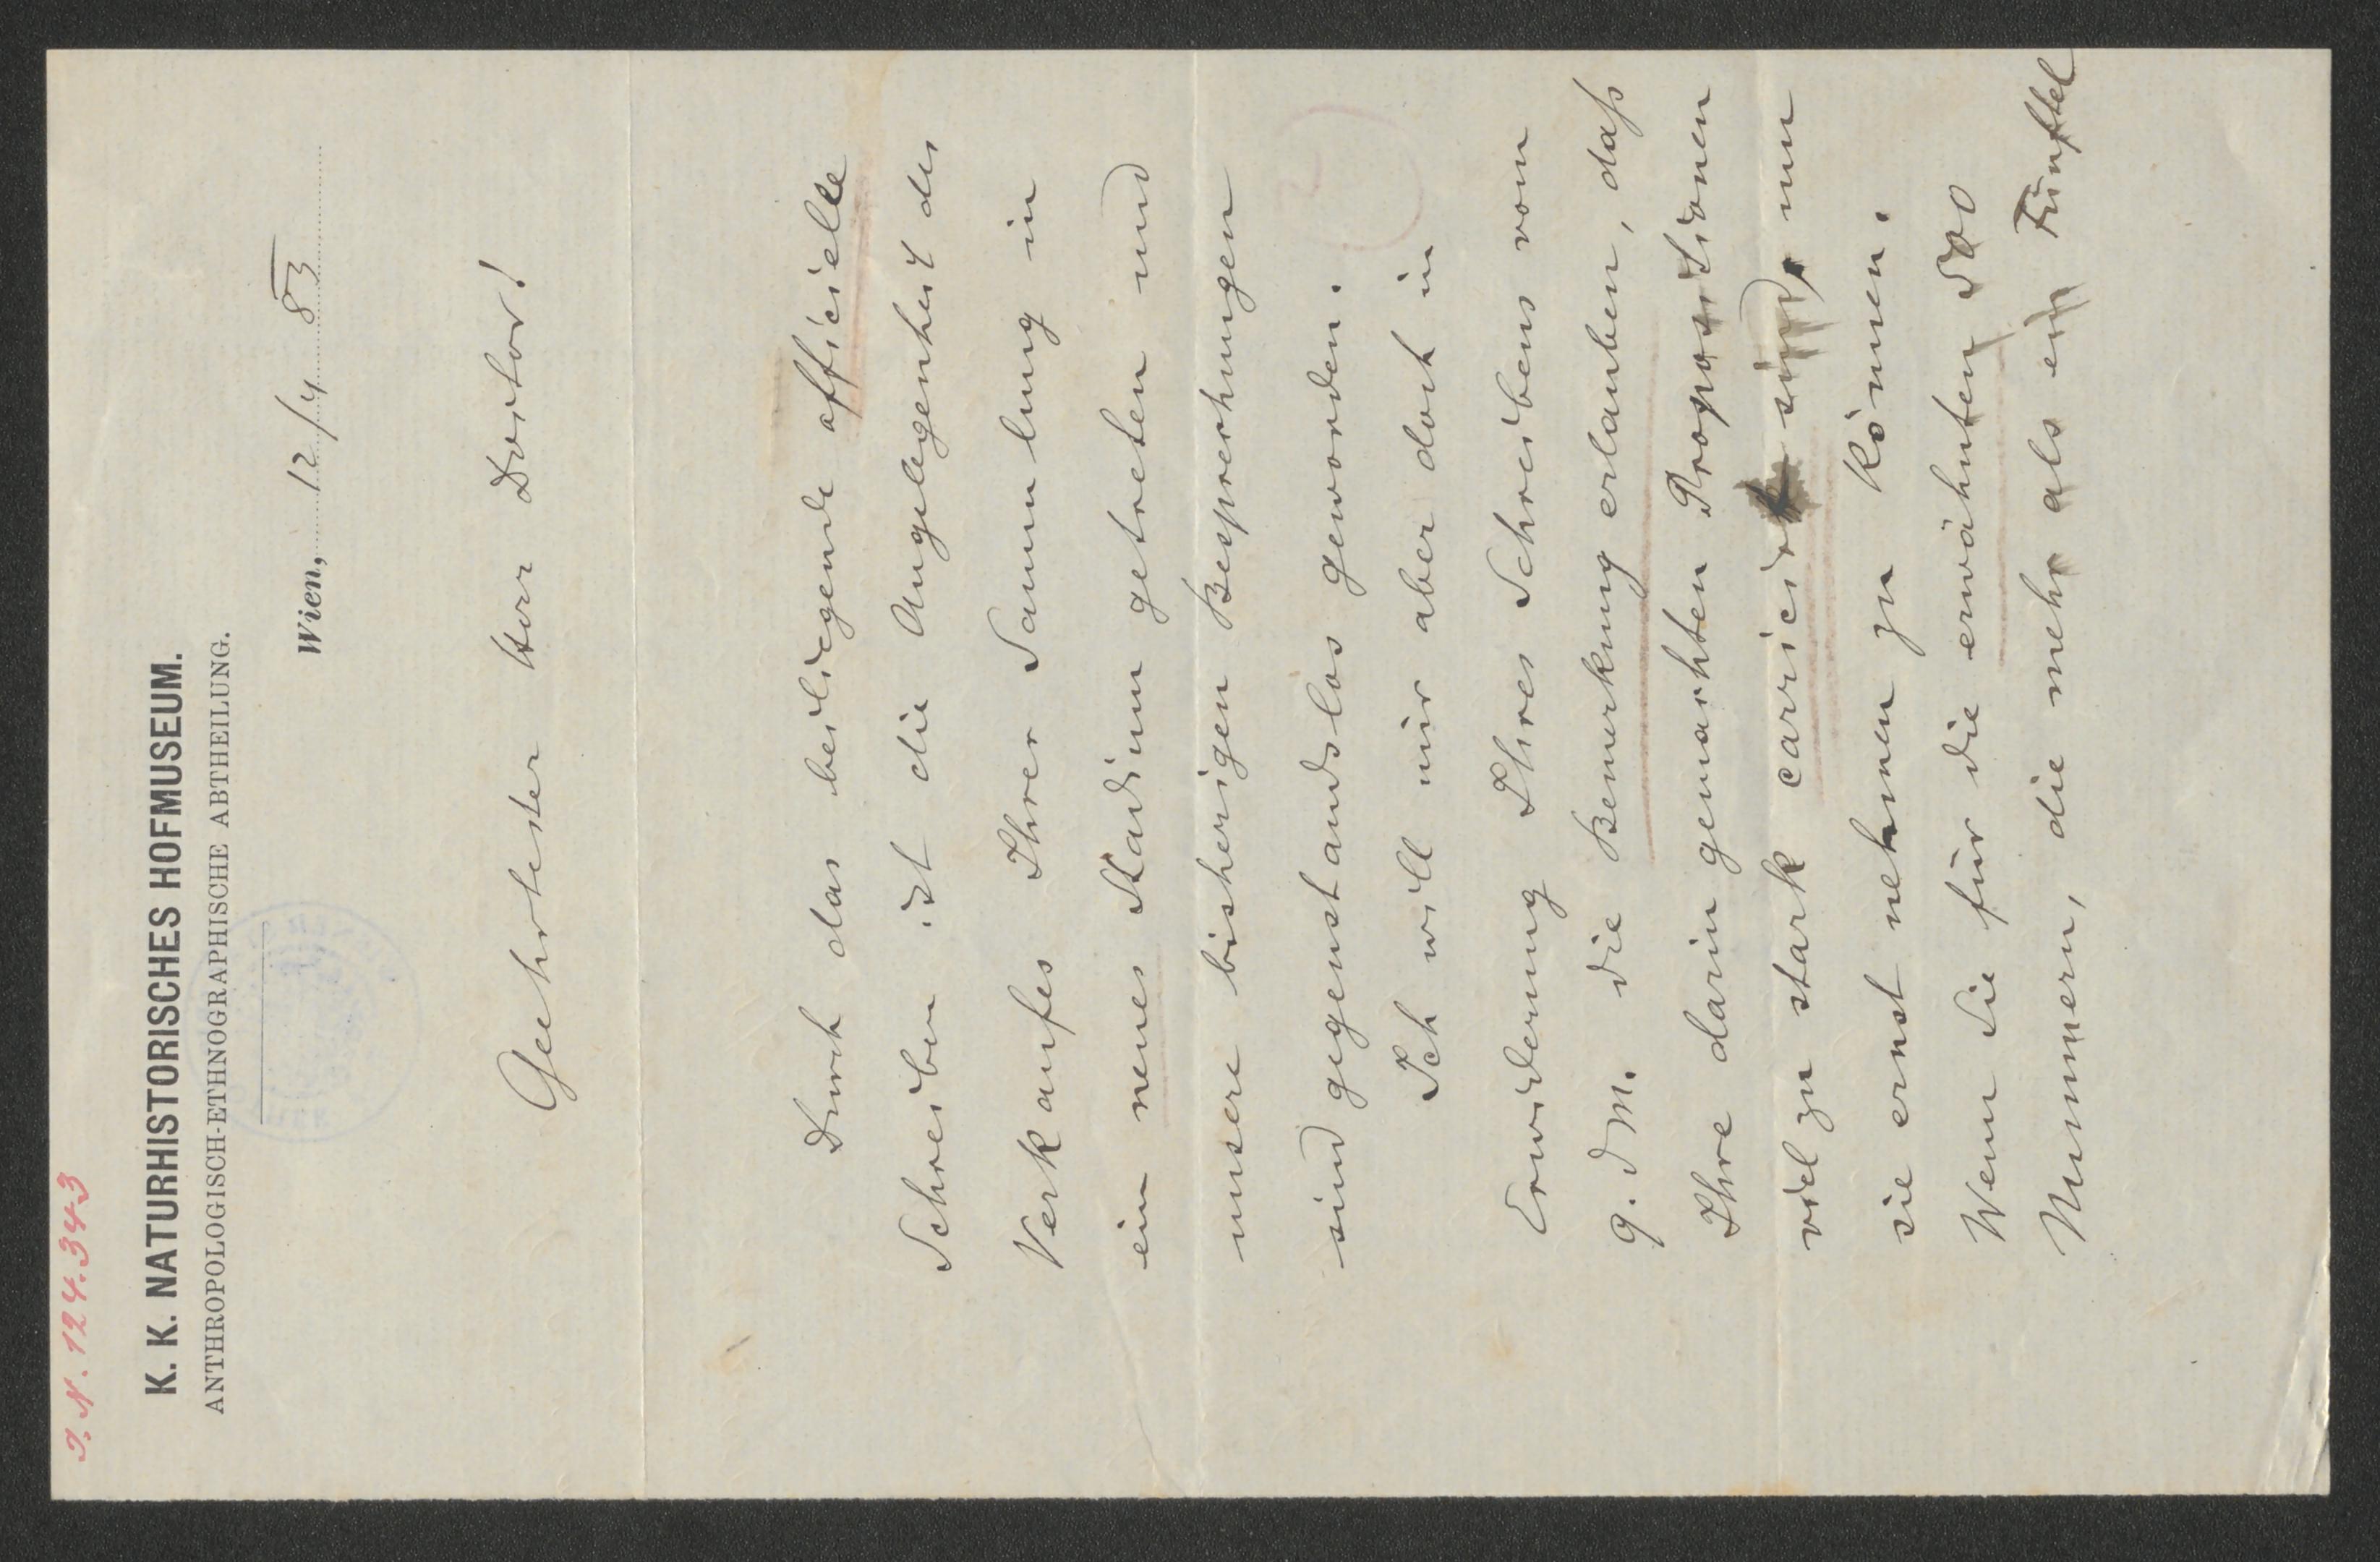 I. N. 124.343
K. K. NATURHISTORISCHES HOFMUSEUM.
ANTHROPOLOGISCH-ETHNOGRAPHISCHE ABTHEILUNG.
Wien, 12/4 83
Geehrtester Herr Doctor!
Durch das beiliegende officielle
Schreiben ist die Angelegenheit des
Verkaufes Ihrer Sammlung in
ein neues Stadium getreten und
unsere bisherigen Besprechungen
sind gegenstandslos geworden.
Ich will mir aber doch in
Erwiderung Ihres Schreibens vom
9. d M. die Bemerkung erlauben, daß
Ihre darin gemachten Propositionen
viel zu stark carricirt sind, um
sie ernst nehmen zu können.
Wenn Sie für die erwähnten 500
Nummern, die mehr als ein Fünftel